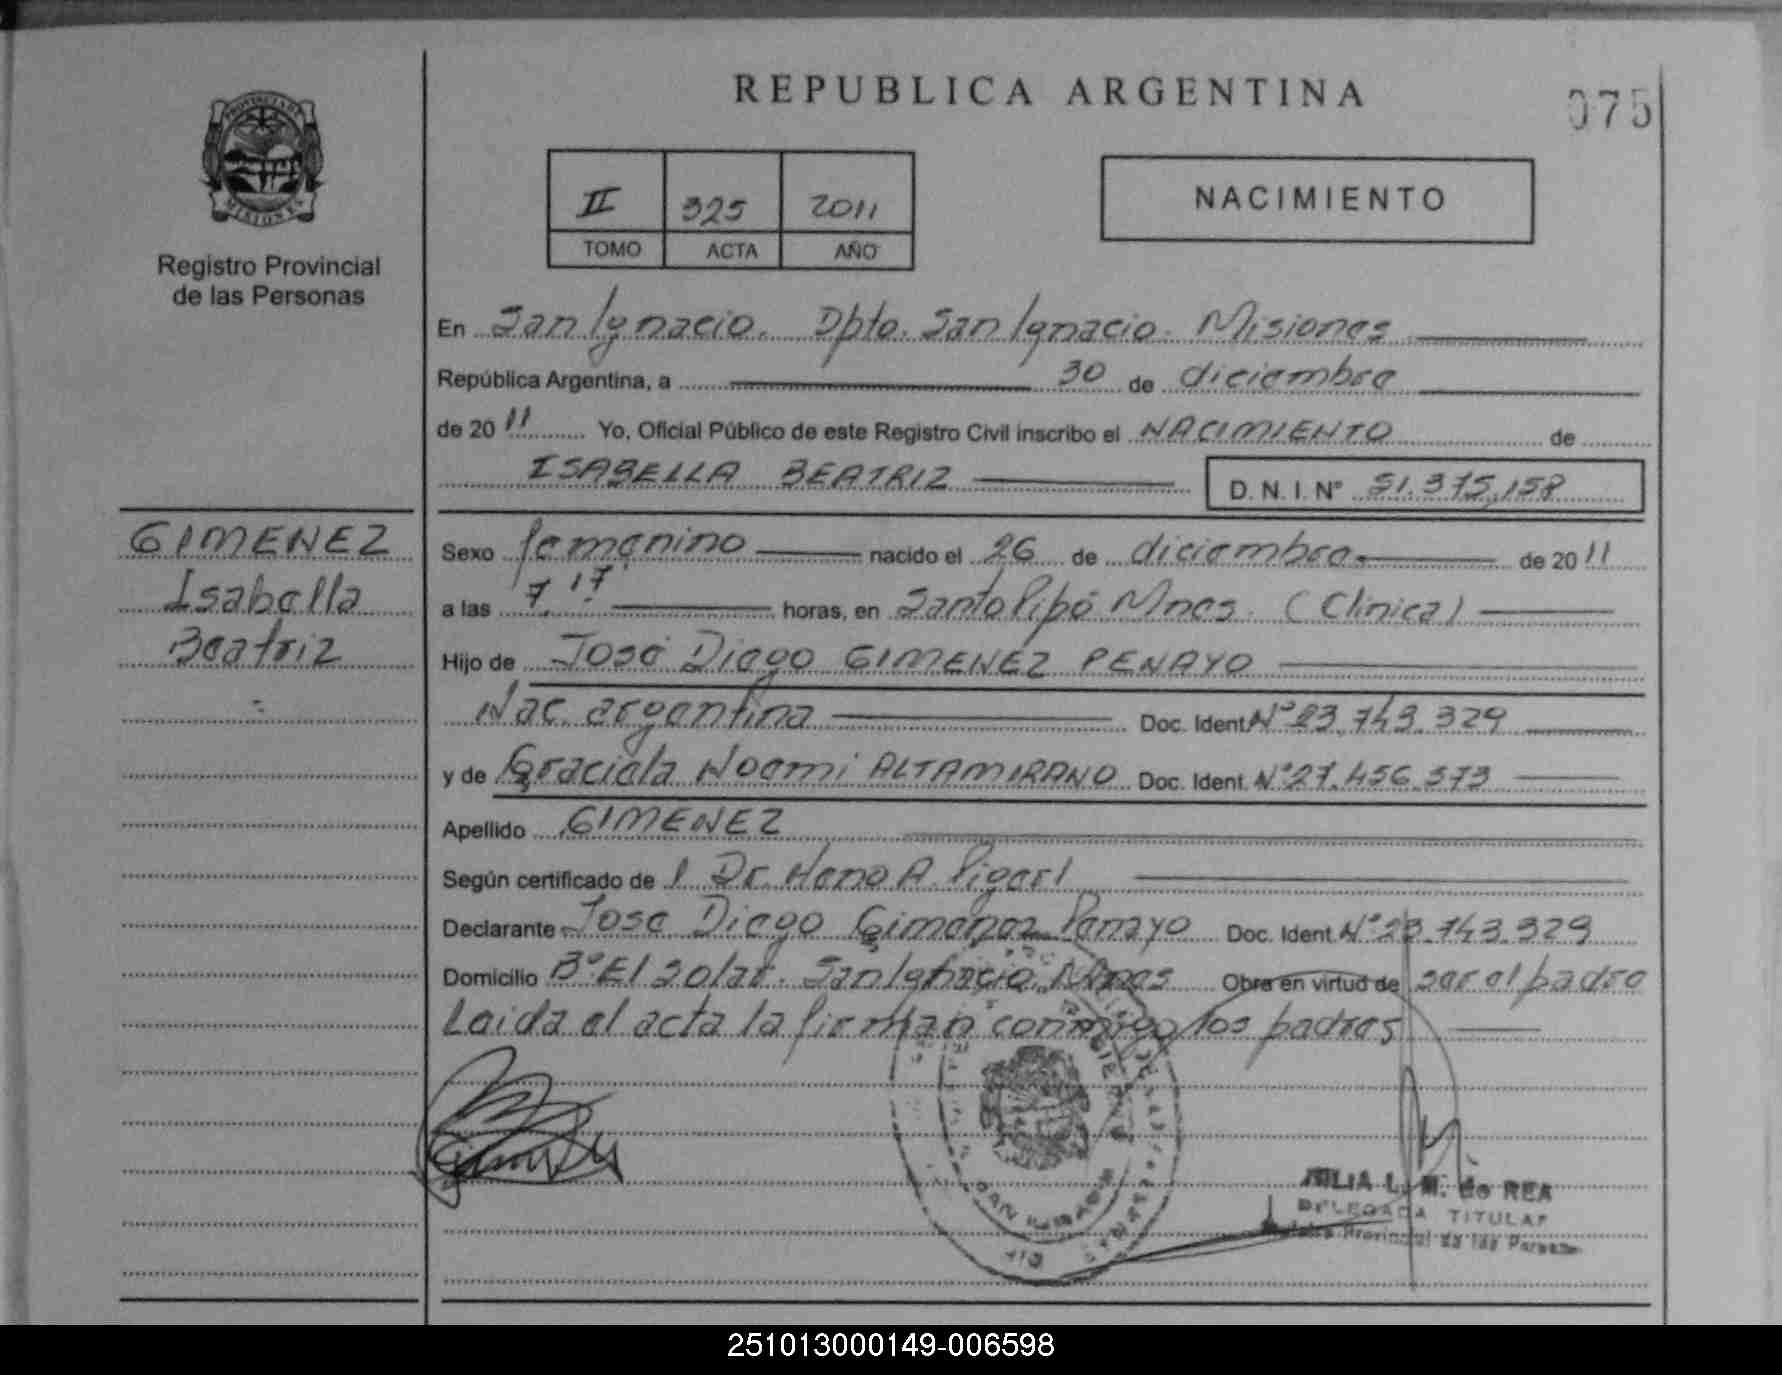 REPUBLICA ARGENTINA
075
PROVINCIA DE
MISIONES
Registro Provincial
de las Personas
II 325 2011
TOMO ACTA AÑO
NACIMIENTO
En San Ignacio. Dpto. San Ignacio. Misiones
República Argentina, a 30 de diciembre
de 2011 Yo, Oficial Público de este Registro Civil inscribo el NACIMIENTO de
ISABELLA BEATRIZ D.N.I. Nº 51.375.158
GIMENEZ
Isabella
Beatriz
Sexo femenino nacido el 26 de diciembre de 2011
a las 7.17 horas, en Santo Pipó Mnes. (Clinica)
Hijo de José Diego GIMENEZ PENAYO
Nac. argentina Doc. Ident. Nº 23.743.329
y de Graciela Noemi ALTAMIRANO Doc. Ident. Nº 27.456.573
Apellido GIMENEZ
Según certificado de l Dr. A.
Declarante José Diego Gimenez Penayo Doc. Ident. Nº 23.743.329
Domicilio Bº El Solar. San Ignacio. Mnes Obra en virtud de ser el padre
Leida el acta la firman conmigo los padres
JULIA L. M. de REA
DELEGADA TITULAR
Provincial de las Personas
251013000149-006598